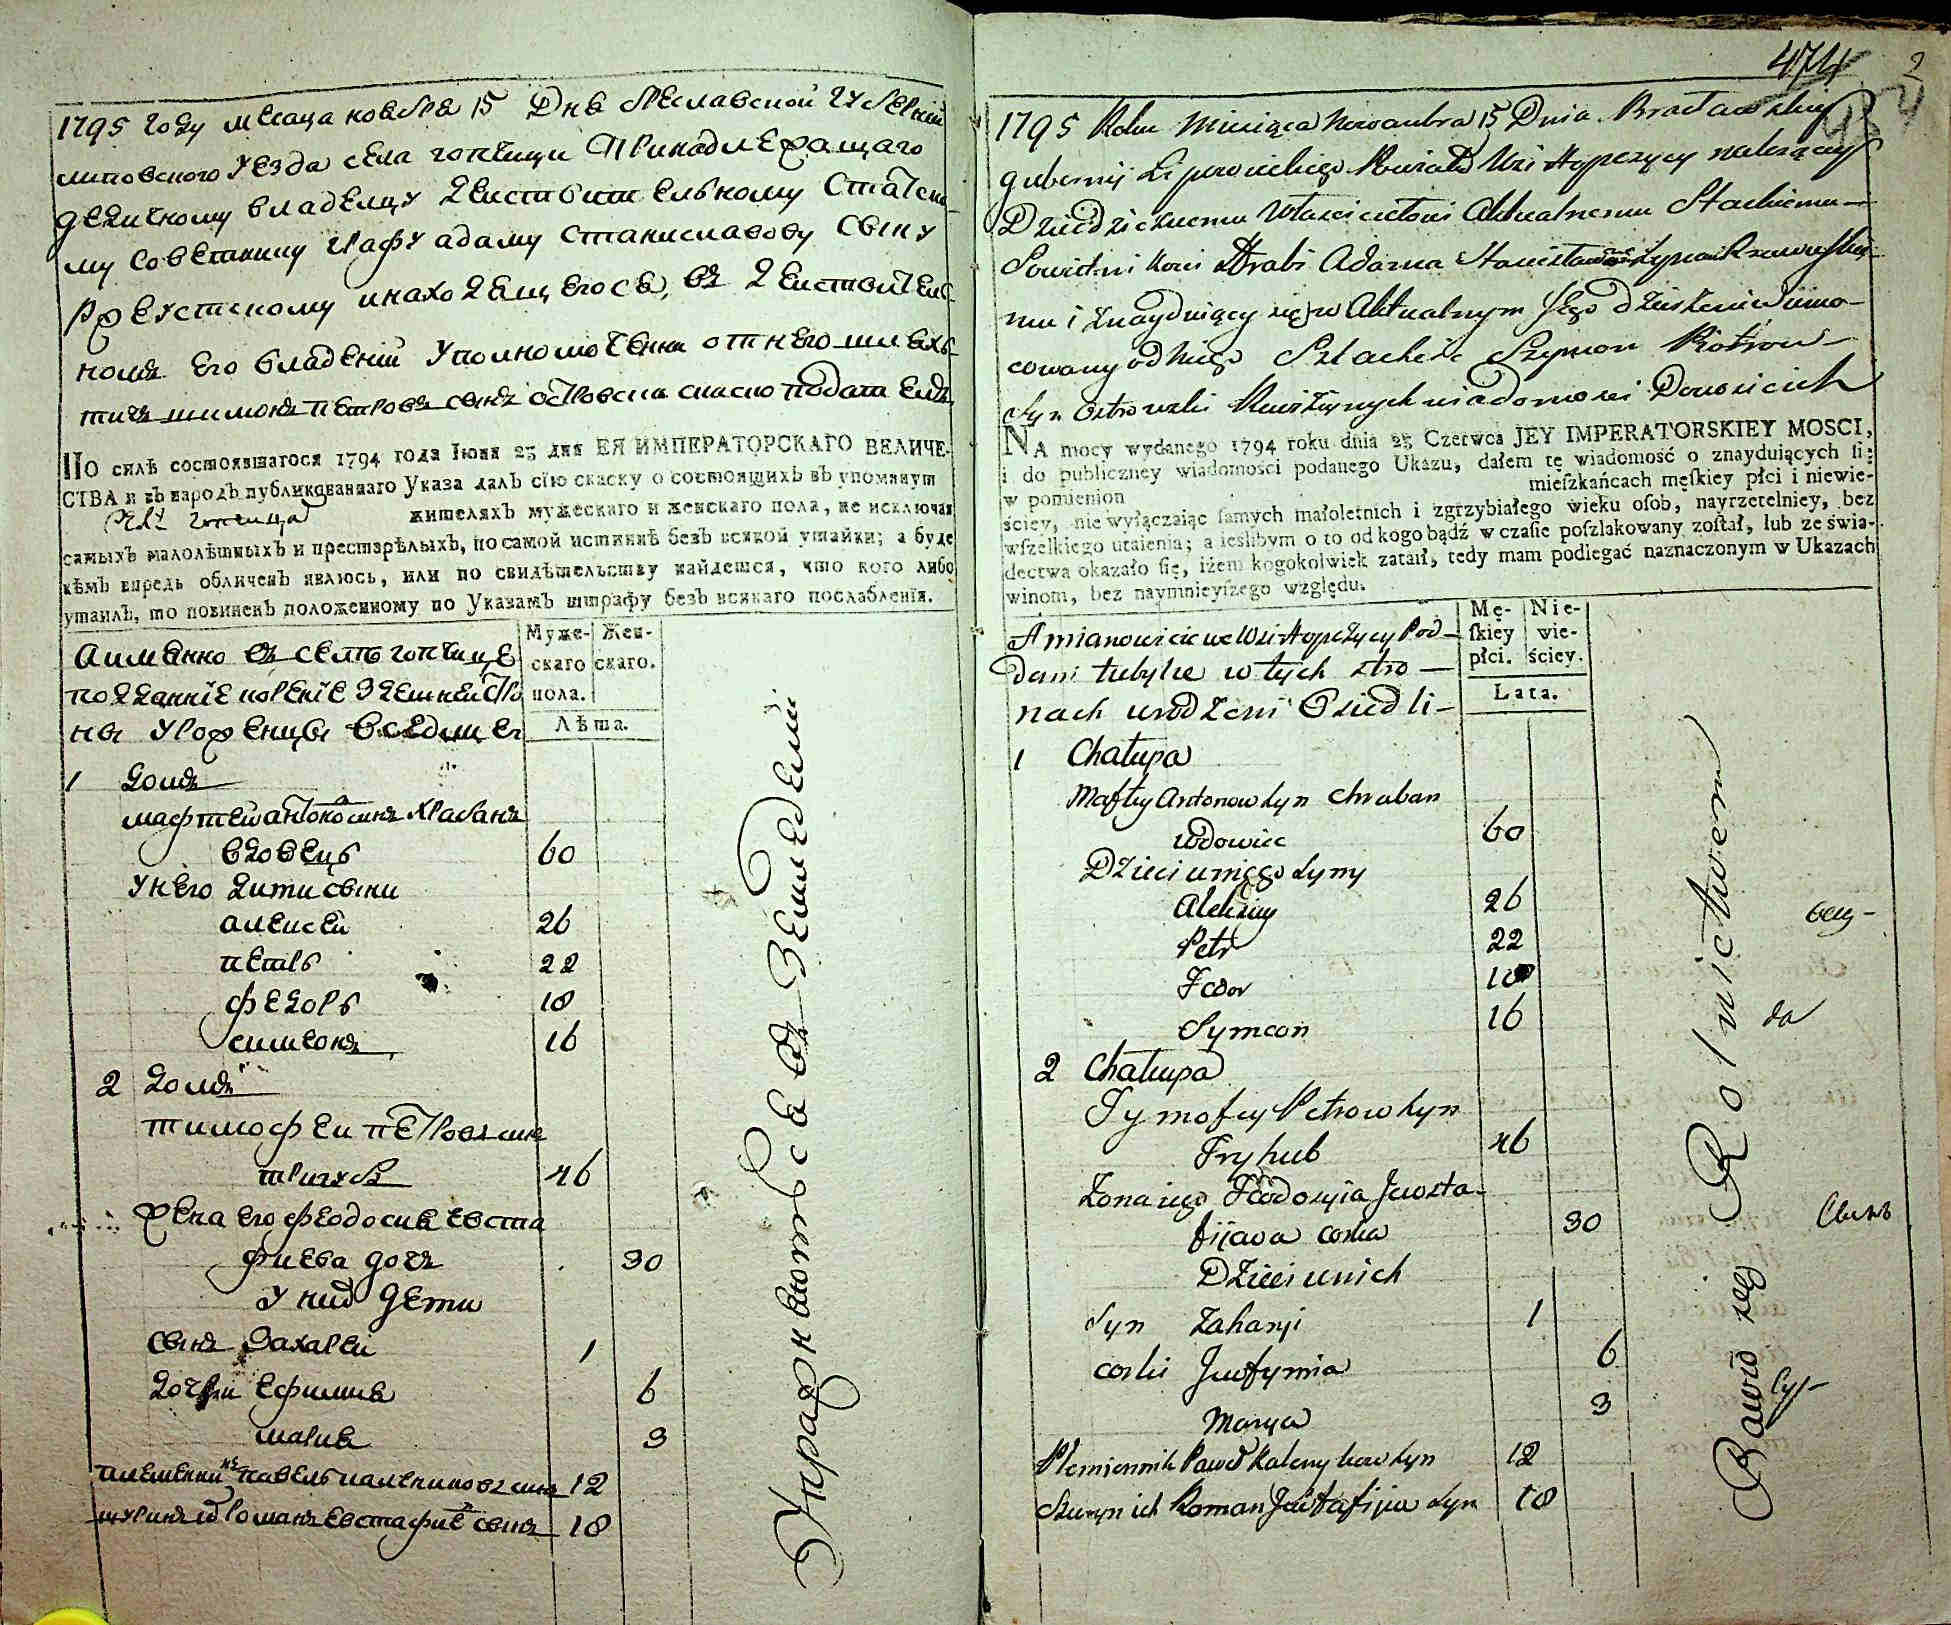 1795 году месяца ноября 15 Дня Бреславской губернии
липовского уезда села гопчици Принадлежащаго
дедичному владелцу действительному Статско-
му советнику графу адаму Станиславову сыну
Ржевускому инаходящегося, въ действител-
номъ его владении уполномоченни от него шлях-
тичь шимонъ петровъ сынъ островски скаску подателъ
ПО силѣ состоявшагося 1794 года Iюня 23 дня ЕЯ ИМПЕРАТОРСКАГО ВЕЛИЧЕ-
СТВА и въ народъ публикованнаго Указа далъ сiю скаску о состоящихъ въ упомянут
селу гопчица жителяхъ мужескаго и женскаго пола, не исключая
самыхъ малолѣтныхъ и престарѣлыхъ, по самой истиннѣ безъ всякой утайки; а буде
кѣмъ впредь обличенъ явлюсь, или по свидѣтельству найдется, что кого либо
утаилъ, то повиненъ положенному по Указамъ штрафу безъ всякаго послабленiя.
аименно въ селѣ гопчице
подданние корение здешней сторо
ни уроженцы вседящ
Муже-скаго пола. Жен-скаго.
Лѣта.
1 домъ
мафтей антоно синъ храбанъ
вдовецъ 60
у него дити сыни
алексей 26
петръ 22
федоръ 18
симеонъ 16
2 домъ
тимофеи петровъ синъ
тригубъ 46
жена его феодосия евста
фиева дочъ 30
у них дети
сынъ захарей 1
дочери ефимия 6
мария 3
племенникъ павелъ калениковъ синъ 12
шуринъ роман евстафие сынъ 18
Упражнюются въ Земледелии
474
2
1795 Roku Miesiąca Nowanbra 15 Dnia Bracławskey
gubernij Lipowieckiego Powiatu Wsi Hopczycy należącey
Dziedzicznemu Właścicielowi Aktualnemu Stackiemu
Sowietnikowi Hrabi Adama Stanisława Syna Rzewuskie-
mu i znayduiący się w Aktualnym Jego dzierżeniu Umo-
cowany od Niego Szlachcic Szymon Piotrow
syn Ostrowski Rewizyinych wiadomosci Donosiciel
NA mocy wydanego 1794 roku dnia 23 Czerwca JEY IMPERATORSKIEY MOSCI,
i do publiczney wiadomości podanego Ukazu, dałem tę wiadomość o znayduiących ſię
w pomienion mieſzkańcach męſkiey płci i niewie-
ściey, nie wyłączaiąc ſamych małoletnich i zgrzybiałego wieku oſob, nayrzetelniey, bez
wſzelkiego utaienia; a ieslibym o to od kogo bądź w czaſie poſzlakowany został, lub ze świa-
dectwa okazało ſię, iżem kogokolwiek zataił, tedy mam podlegać naznaczonym w Ukazach
winom, bez naymnieyſzego względu.
Amianowicie we Wsi Hopczycy Pod-
dani tubylce w tych stro-
nach urodzeni Osiedli-
Mę-ſkiey płci. Nie-wie-ściey.
Lata.
1 Chałupa
Maftey Antonow Syn Chraban
wdowiec 60
Dzieci u niego Syny
Alekziey 26
Petr 22
Fedor 18
Symeon 16
2 Chałupa
Tymofey Petrow Syn
Tryhub 46
Zona iego Feodosyia Jewsta-
fijawa corka 30
Dzieci u nich
Syn Zaharyi 1
corki Jewfymia 6
Marya 3
Plemiennik Paweł Kalenykow Syn 12
Szuryn ich Roman Jewstafijew Syn 18
Bawią się Rolnictwem
да